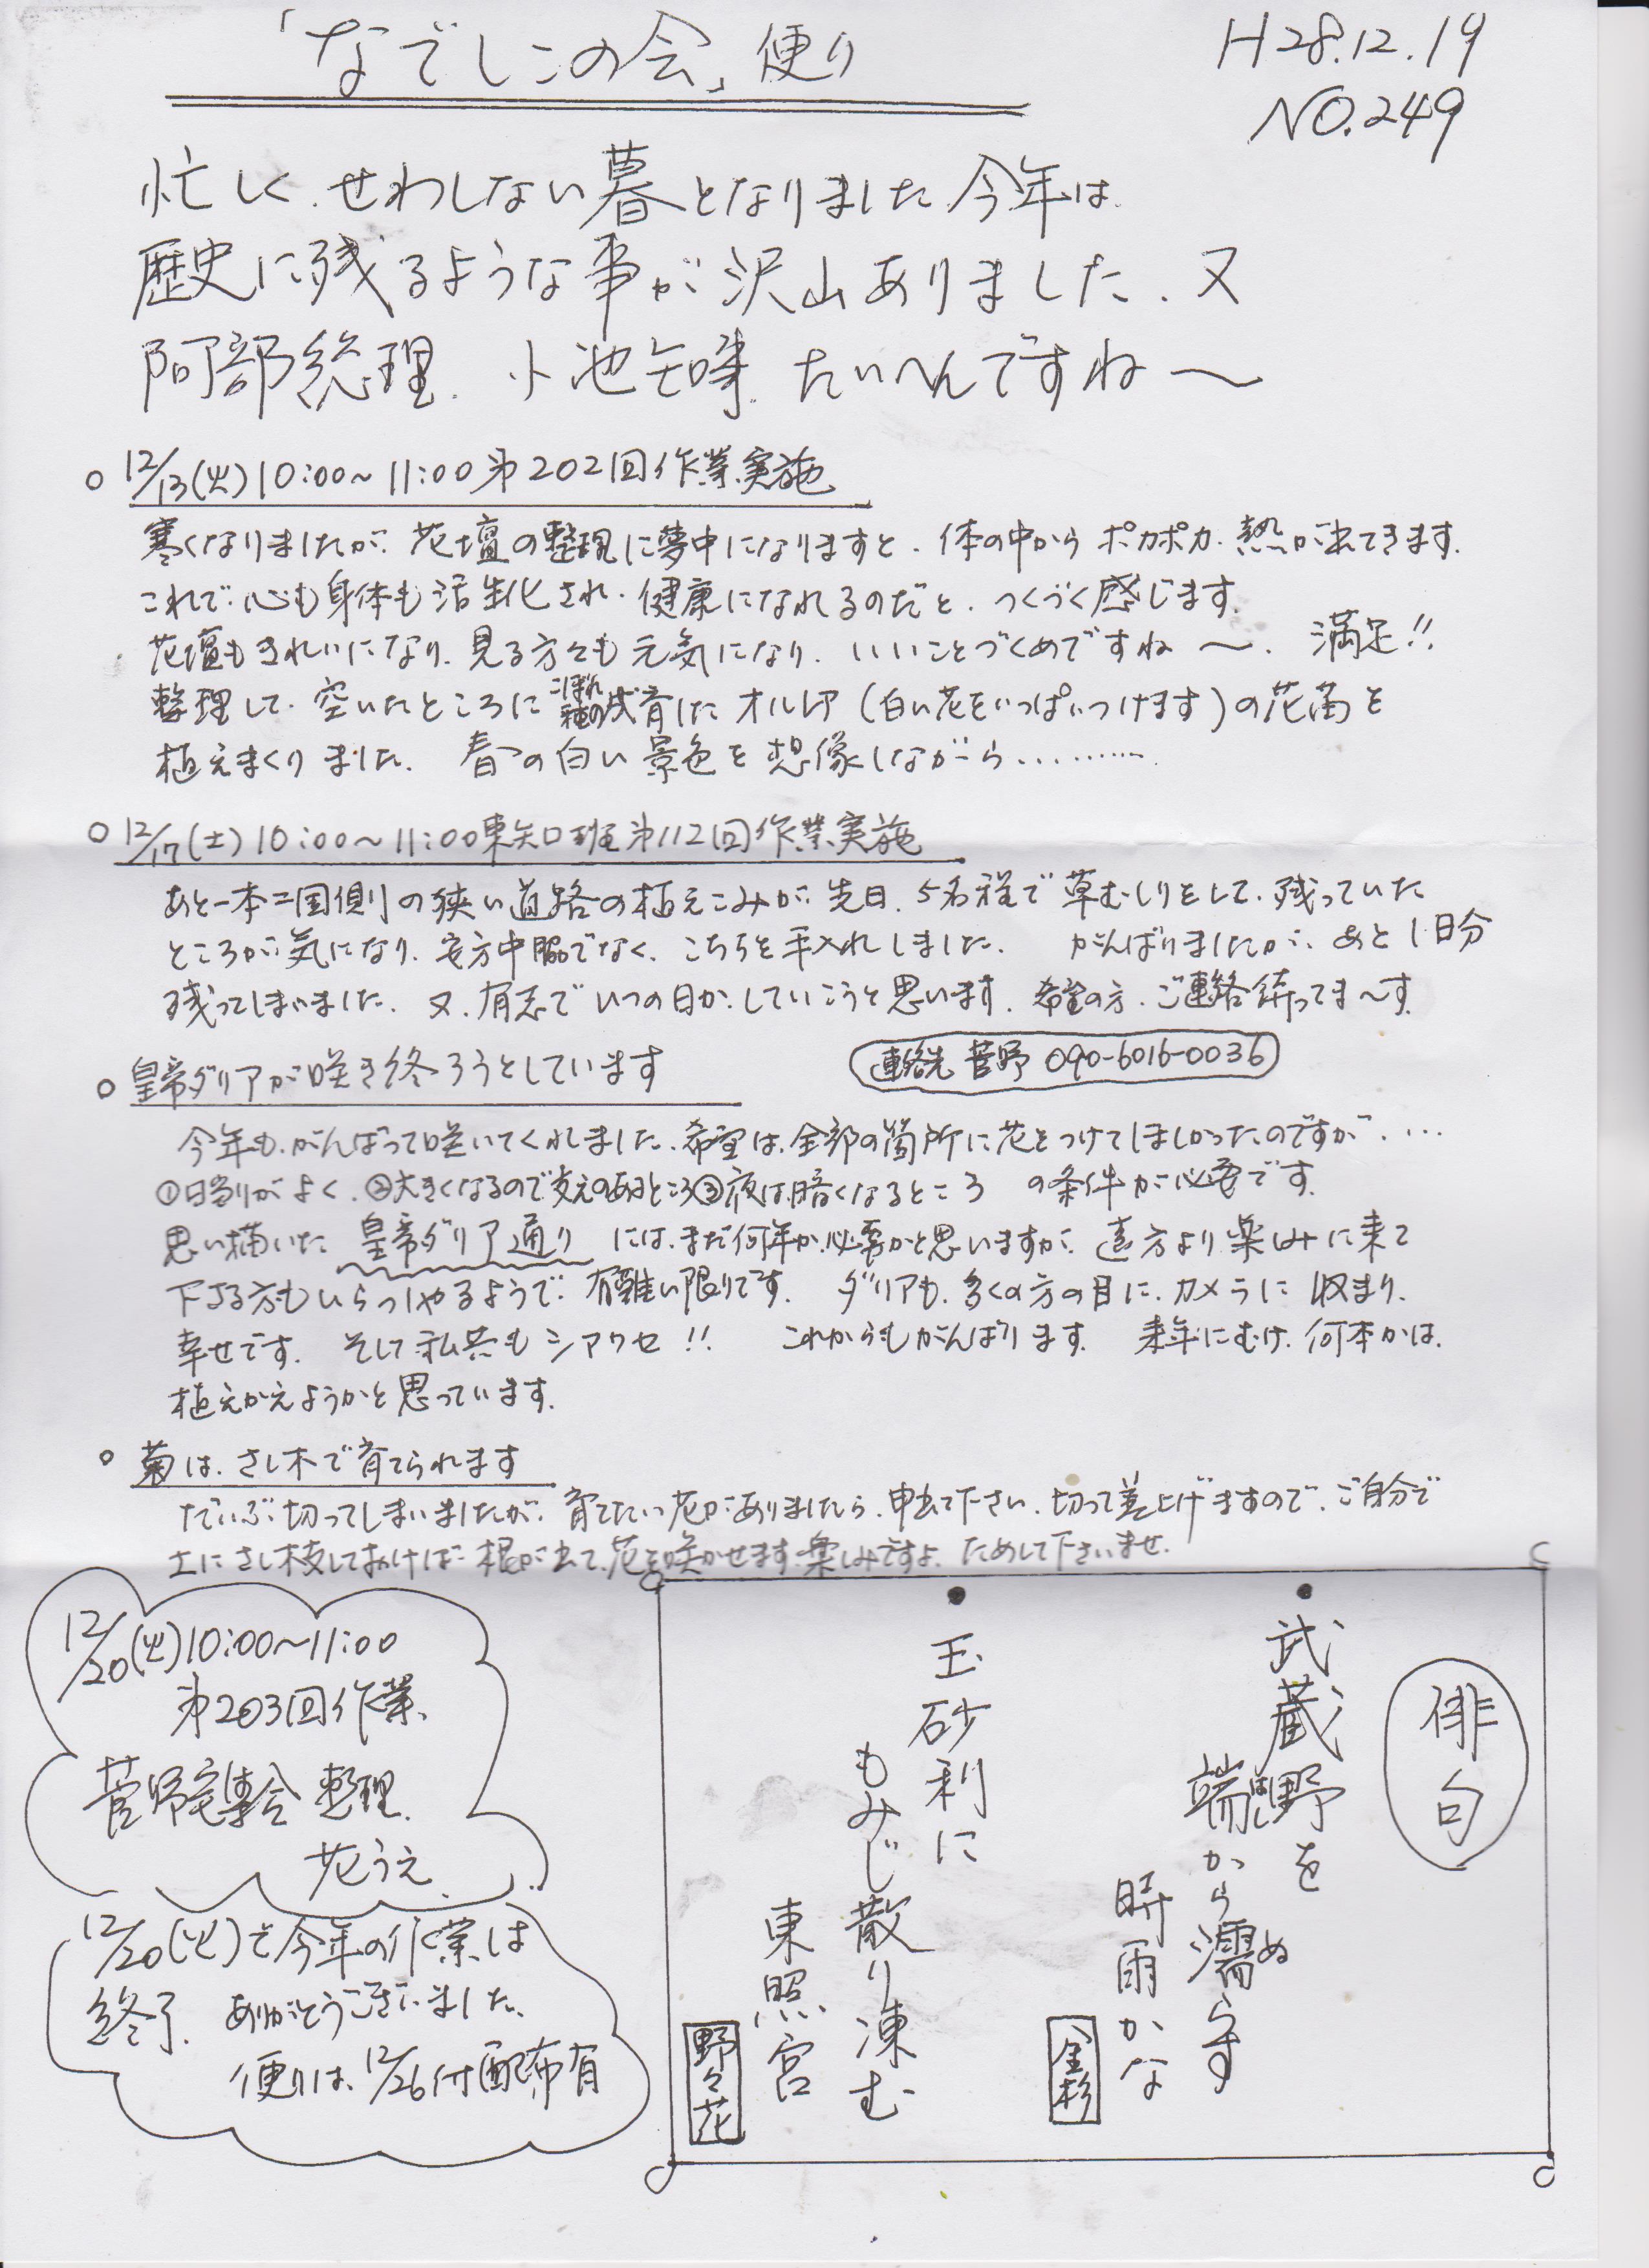 「なでしこの会」便り
H28.12.19
NO.249
忙しく、せわしない暮となりました 今年は、
歴史に残るような事が沢山ありました、又
阿部総理、小池知事、たいへんですね〜
○ 12/13(火)10:00〜11:00 第202回作業実施
寒くなりましたが、花壇の整理に夢中になりますと、体の中からポカポカ、熱が出てきます。
これで、心も身体も活性化され、健康になれるのだと、つくづく感じます。
花壇もきれいになり、見る方々も元気になり、いいことづくめですね〜、満足!!
整理して、空いたところにこぼれ種の成育したオルレア(白い花をいっぱいつけます)の花苗を
植えまくりました、春の白い景色を想像しながら………
○ 12/17(土)10:00〜11:00 東矢口班第112回作業実施
あと一本二国側の狭い道路の植えこみが、先日、5名程で草むしりをして、残っていた
ところが気になり、安方中脇でなく、こちらを手入れしました、がんばりましたが、あと1日分
残ってしまいました、又、有志でいつの日か、していこうと思います、希望の方、ご連絡待ってま〜す。
連絡先 菅野 090-6016-0036
○ 皇帝ダリアが咲き終ろうとしています
今年も、がんばって咲いてくれました、希望は、全部の箇所に花をつけてほしかったのですが、…
①日当りがよく、②大きくなるので支えのあるところ③夜は暗くなるところ の条件が必要です。
思い描いた 皇帝ダリア通り には、まだ何年か必要かと思いますが、遠方より楽しみに来て
下さる方もいらっしゃるようで、有難い限りです。ダリアも、多くの方の目に、カメラに収まり、
幸せです。そして私共もシアワセ!! これからもがんばります。来年にむけ、何本かは、
植えかえようかと思っています。
○ 菊は、さし木で育てられます
だいぶ切ってしまいましたが、育てたい花がありましたら、申出て下さい、切って差上げますので、ご自分で
土にさし枝しておけば、根が出て、花を咲かせます、楽しみですよ、ためして下さいませ。
12/20(火)10:00〜11:00
第203回作業
菅野宅集合 整理、
花うえ
12/20(火)で今年の作業は
終了、ありがとうございました、
便りは、12/26付配布有
俳句
● 武蔵野を
端(はし)から濡(ぬ)らす
時雨かな
金杉
● 玉砂利に
もみじ散り凍む
東照宮
野々花